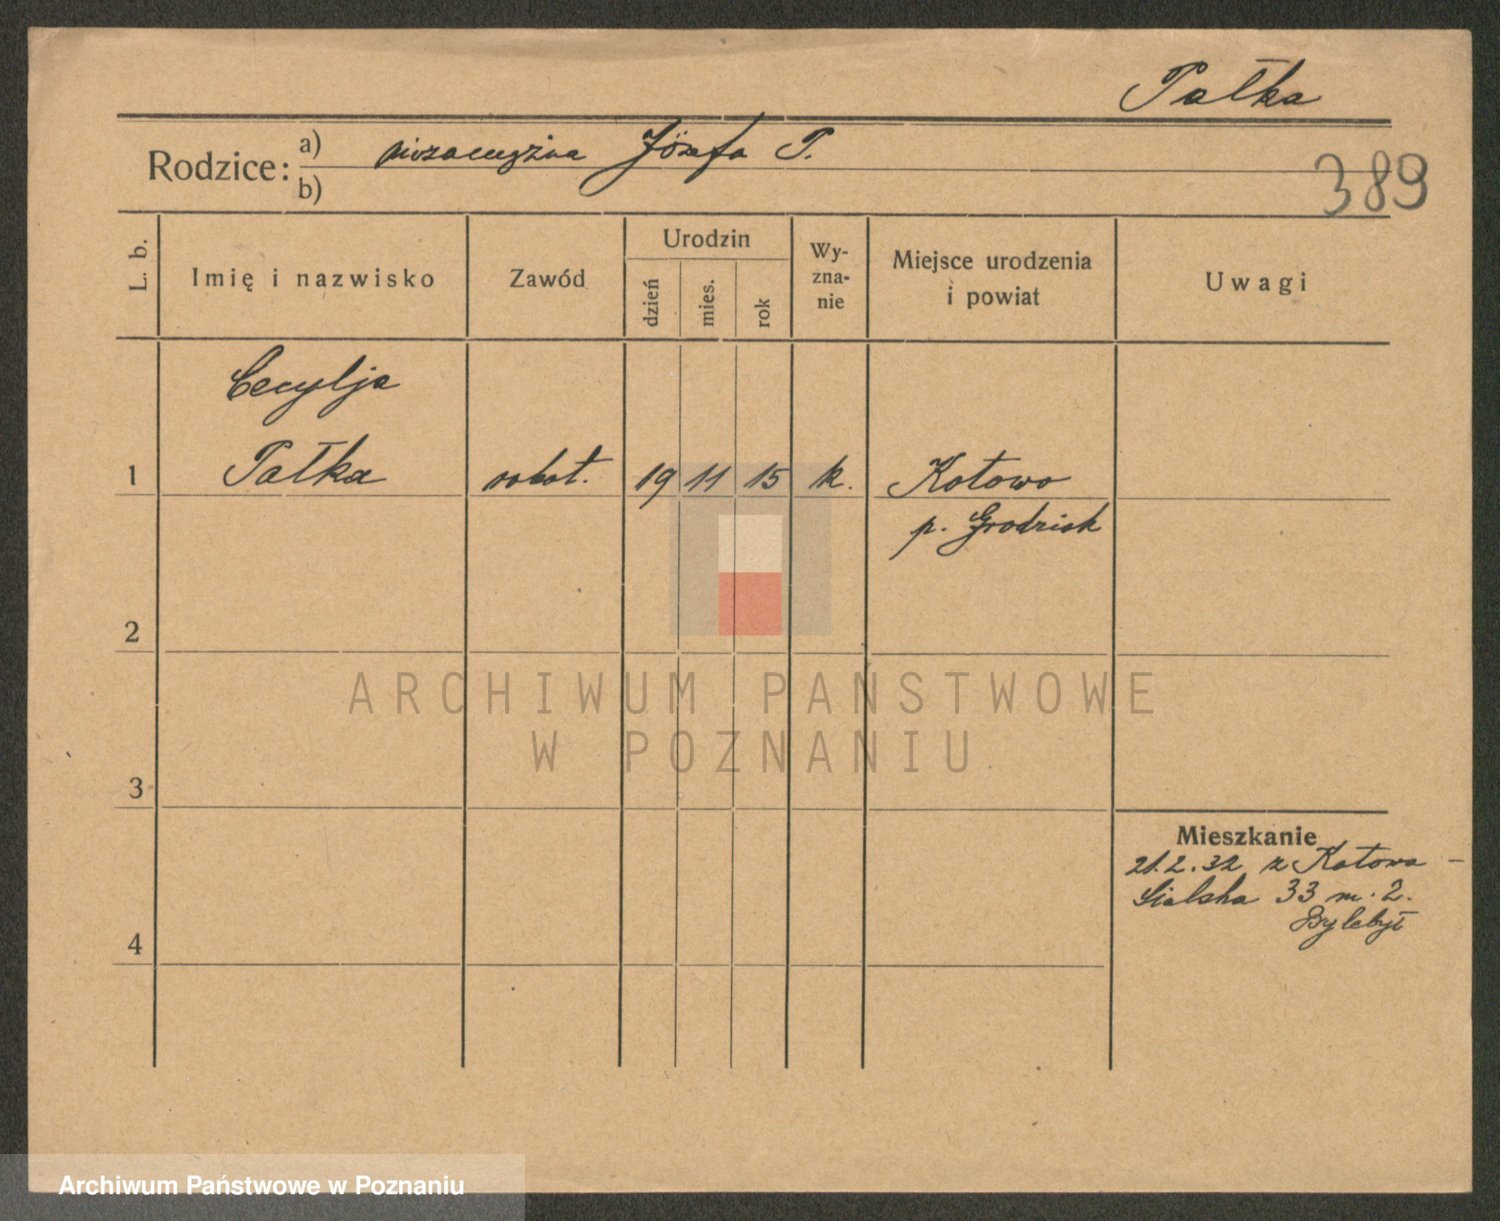 Pałka
Rodzice: a) niezamężna Józefa P.
b)
389
L. b.
Imię i nazwisko
Zawód
Urodzin
dzień
mies.
rok
Wy-
zna-
nie
Miejsce urodzenia
i powiat
Uwagi
Cecylja
1 Pałka robot. 19 11 15 k. Kotowo
p. Grodzisk
2
ARCHIWUM PAŃSTWOWE
W POZNANIU
3
Mieszkanie
21.2.32 z Kotowa –
Sielska 33 m. 2.
4
Archiwum Państwowe w Poznaniu